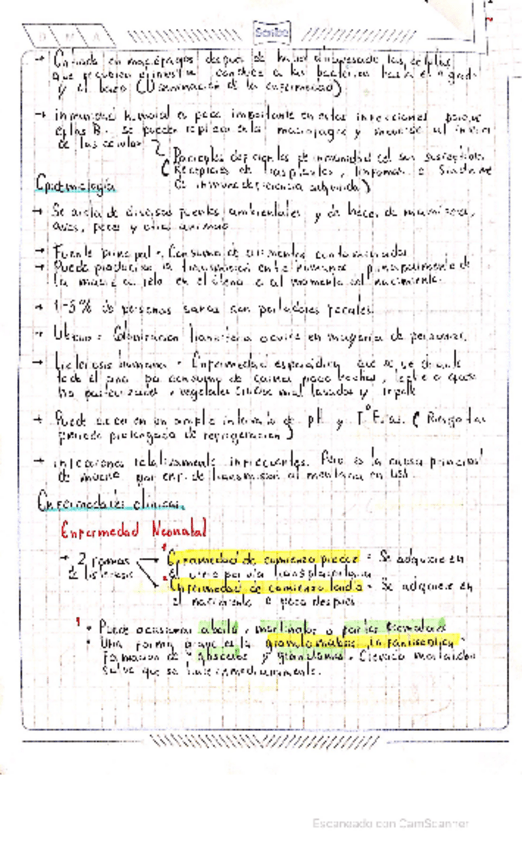 Scribe
→ Entrada en macrófagos después de haber atravesado las células
que recubren conduce a las bacterias hasta el hígado
y el bazo (Diseminación de la enfermedad)
→ inmunidad humoral es poco importante en estas infecciones porque
estas B. se pueden replicar en los macrófagos y moverse al interior
de las células
Pacientes deficientes de inmunidad cel son susceptibles
(Receptores de trasplantes, linfomas o Síndrome
de inmunodeficiencia adquirida)
Epidemiología
→ Se aisla de diversas fuentes ambientales y de heces de mamíferos,
aves, peces y otros animales
→ Fuente principal = Consumo de alimentos contaminados
→ Puede producirse la transmisión entre humanos principalmente de
la madre al feto en el útero o al momento del nacimiento.
→ 1-5% de personas sanas son portadores fecales.
→ Colonización transitoria ocurre en mayoría de personas.
→ Listeriosis humana = Enfermedad esporádica que se ve durante
todo el año por consumo de carnes poco hechas, leche o queso
no pasteurizados, vegetales crudos mal lavados y
→ Puede crecer en un amplio intervalo de pH y T° Frías. (Riesgo tras
periodo prolongado de refrigeración)
→ infecciones relativamente infrecuentes. Pero es la causa principal
de muerte por enf. de transmisión alimentaria en USA.
Enfermedades clínicas
Enfermedad Neonatal
→ 2 formas
de listeriosis
Enfermedad de comienzo precoz = Se adquiere en
el útero por vía transplacentaria
Enfermedad de comienzo tardío = Se adquiere en
el nacimiento o poco después
• Puede ocasionar aborto, mortinatos o partos prematuros
• Una forma precoz es la granulomatosis infantiséptica
formación de abscesos y granulomas. Elevada mortandad
salvo que se trate inmediatamente.
Escaneado con CamScanner